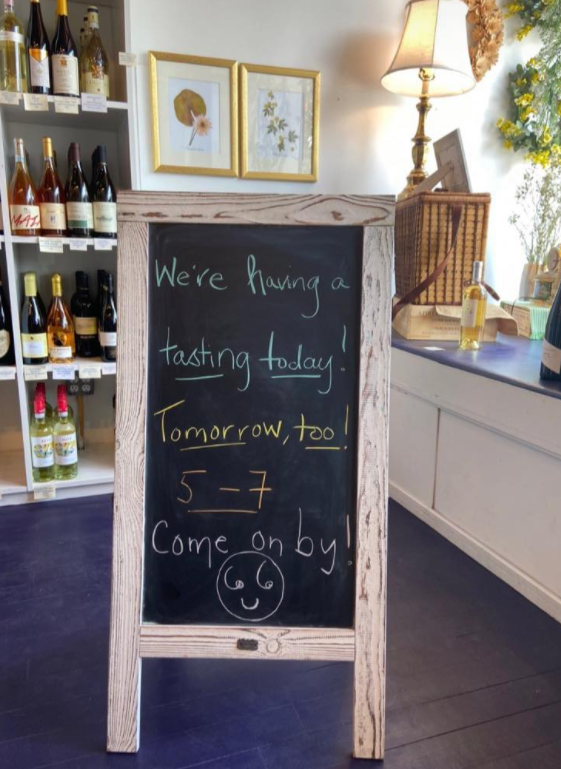 We're having a
tasting today!
Tomorrow, too!
5-7
Come on by!